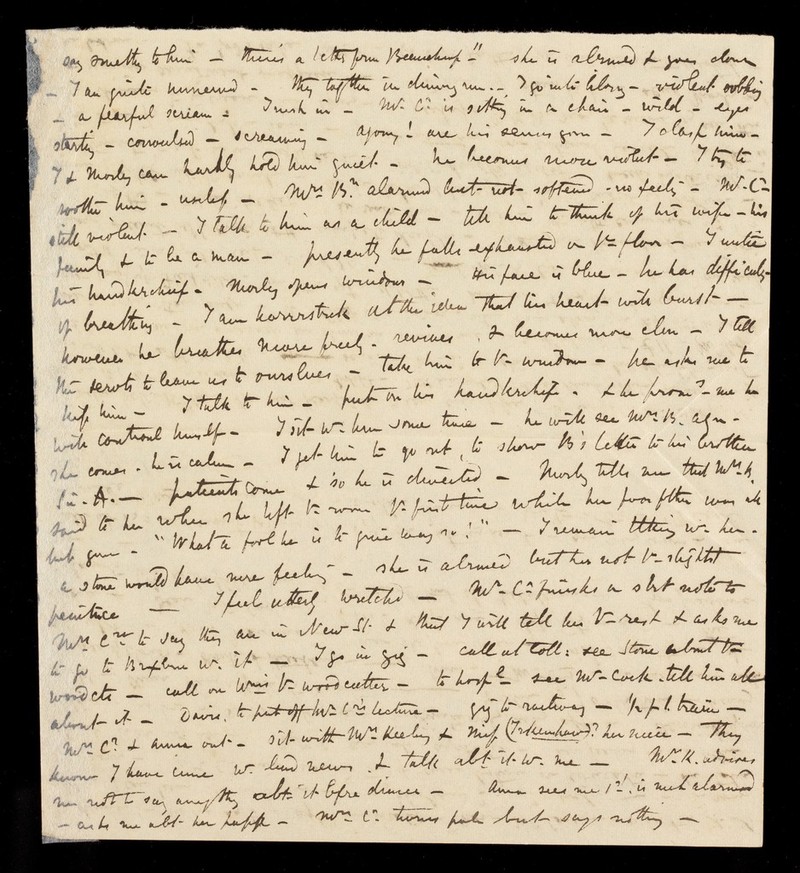 say somethg to him — there's a letter from Beauchamp" she is alarmed & goes down
— I am quite unnerved — they together in dining rm — I go into library — violent sobbing
— a fearful scream — I rush in — Mr. C. is sittg in a chair — wild — eyes
startg — convulsed — screaming — agony! are his senses gone — I clasp him —
I & Morley can hardly hold him quiet — he becomes more violent — I try to
soothe him — useless — Mrs. B. alarmed but not softened - no feelg — Mr. C.
still violent — I talk to him as a child — tell him to think of his wife — his
family & to be a man — presently he falls exhausted on ye floor — I untie
his handkerchief — Morley opens windows — His face is blue — he has difficulty
of breathing — I am horrorstruck at the idea that his heart will burst —
however he breathes more freely - revives, & becomes more calm — I tell
the servts to leave us to ourselves — take him to ye window — he asks me to
kiss him — I talk to him — put on his handkerchief - & he proms. me he
will control himself — I sit w. him some time — he will see Mrs. B. agn —
she comes - he is calm — I get him to go out, to show B's letter to his brother
— patients come & so he is diverted — Morley tells me that Mrs. B.
said to her when she left ye room ye first time while her poor fther was all
but gone — "What a fool he is to give way so!" — I remain w. her -
a stone would have more feeling — she is alarmed but has not ye slightst
penitence — I feel utterly wretched — Mr. C. finishes a shrt note to
Mrs. C. to say they are in New St. & that I will tell her ye rest & asks me
to go to Broxbne w. it — I go in gig — call at Coll: see Stone about ye
woodcts — call on ye woodcutter — to hospl. — see Mr. Cock - tell him all
about it — Davis, to put off Mr. C's lecture — gig to railway — train —
Mrs. C. & Anna out — sit with Mrs. Keeley & Miss her niece — They
know I have come w. bad news & talk abt. it w. me — Mr. K. advises
me not to say anythg abt. it before dinner — Anna sees me 1st. is much alarmed
— asks me abt. her papa — Mrs. C. turns pale but says nothing —